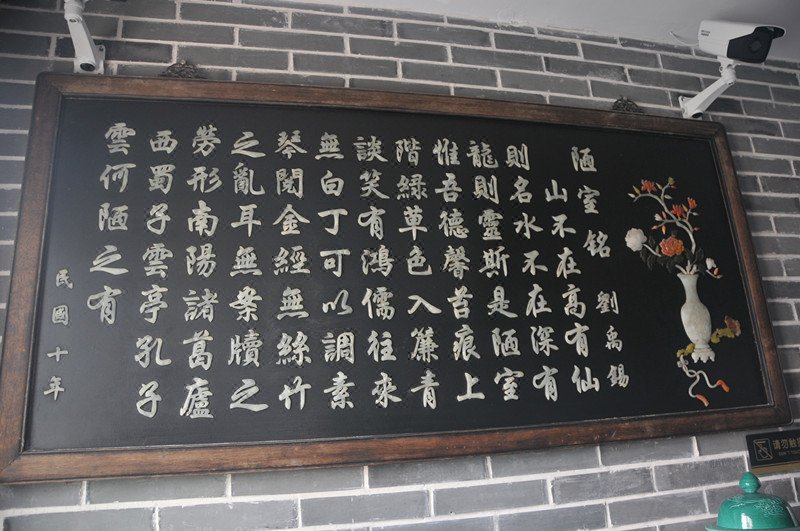 陋室銘 劉禹錫
山不在高有仙
則名水不在深有
龍則靈斯是陋室
惟吾德馨苔痕上
階綠草色入簾青
談笑有鴻儒往來
無白丁可以調素
琴閱金經無絲竹
之亂耳無案牘之
勞形南陽諸葛廬
西蜀子雲亭孔子
雲何陋之有
民國十年
请勿触